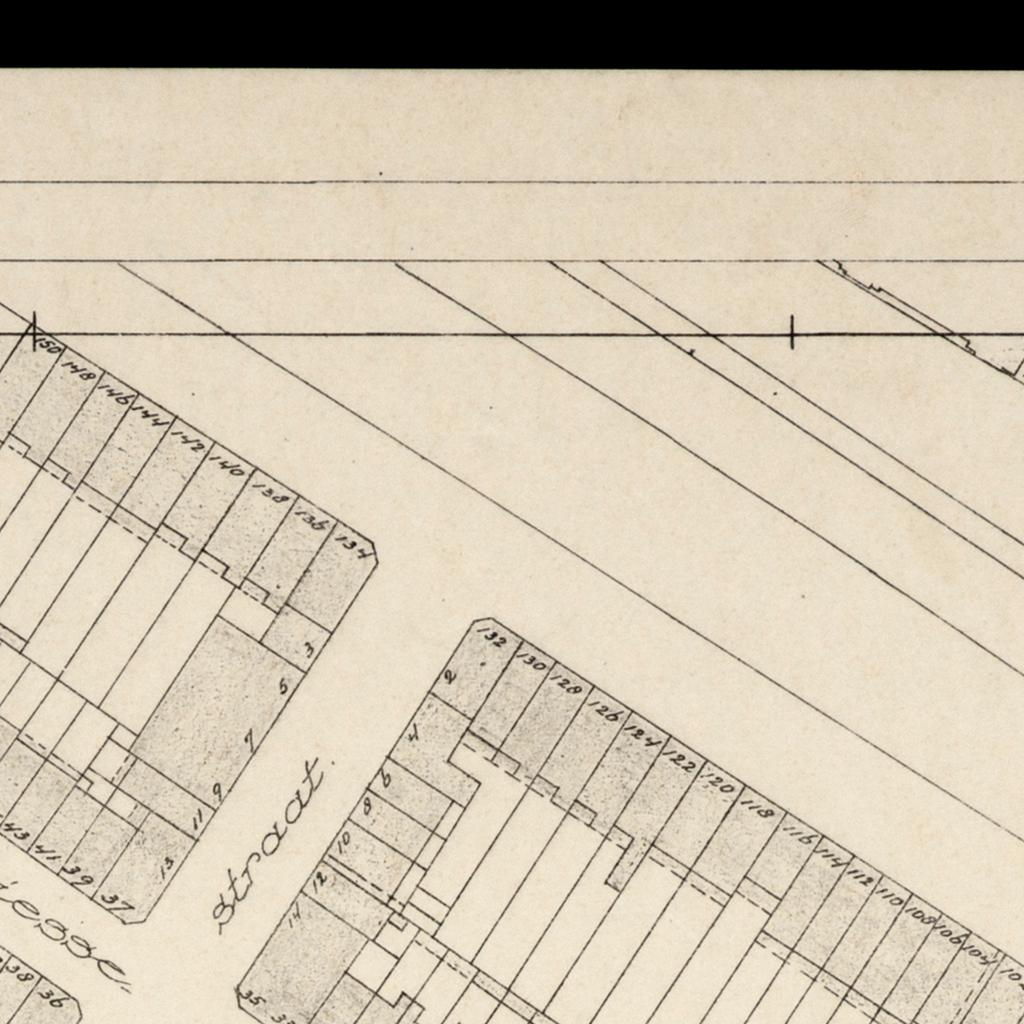 150
148
146
144
142
140
138
136
134
3
5
7
9
11
13
43
41
39
37
straat.
38
36
132
130
128
126
124
122
120
118
116
114
112
110
108
106
104
2
4
6
8
10
12
14
35